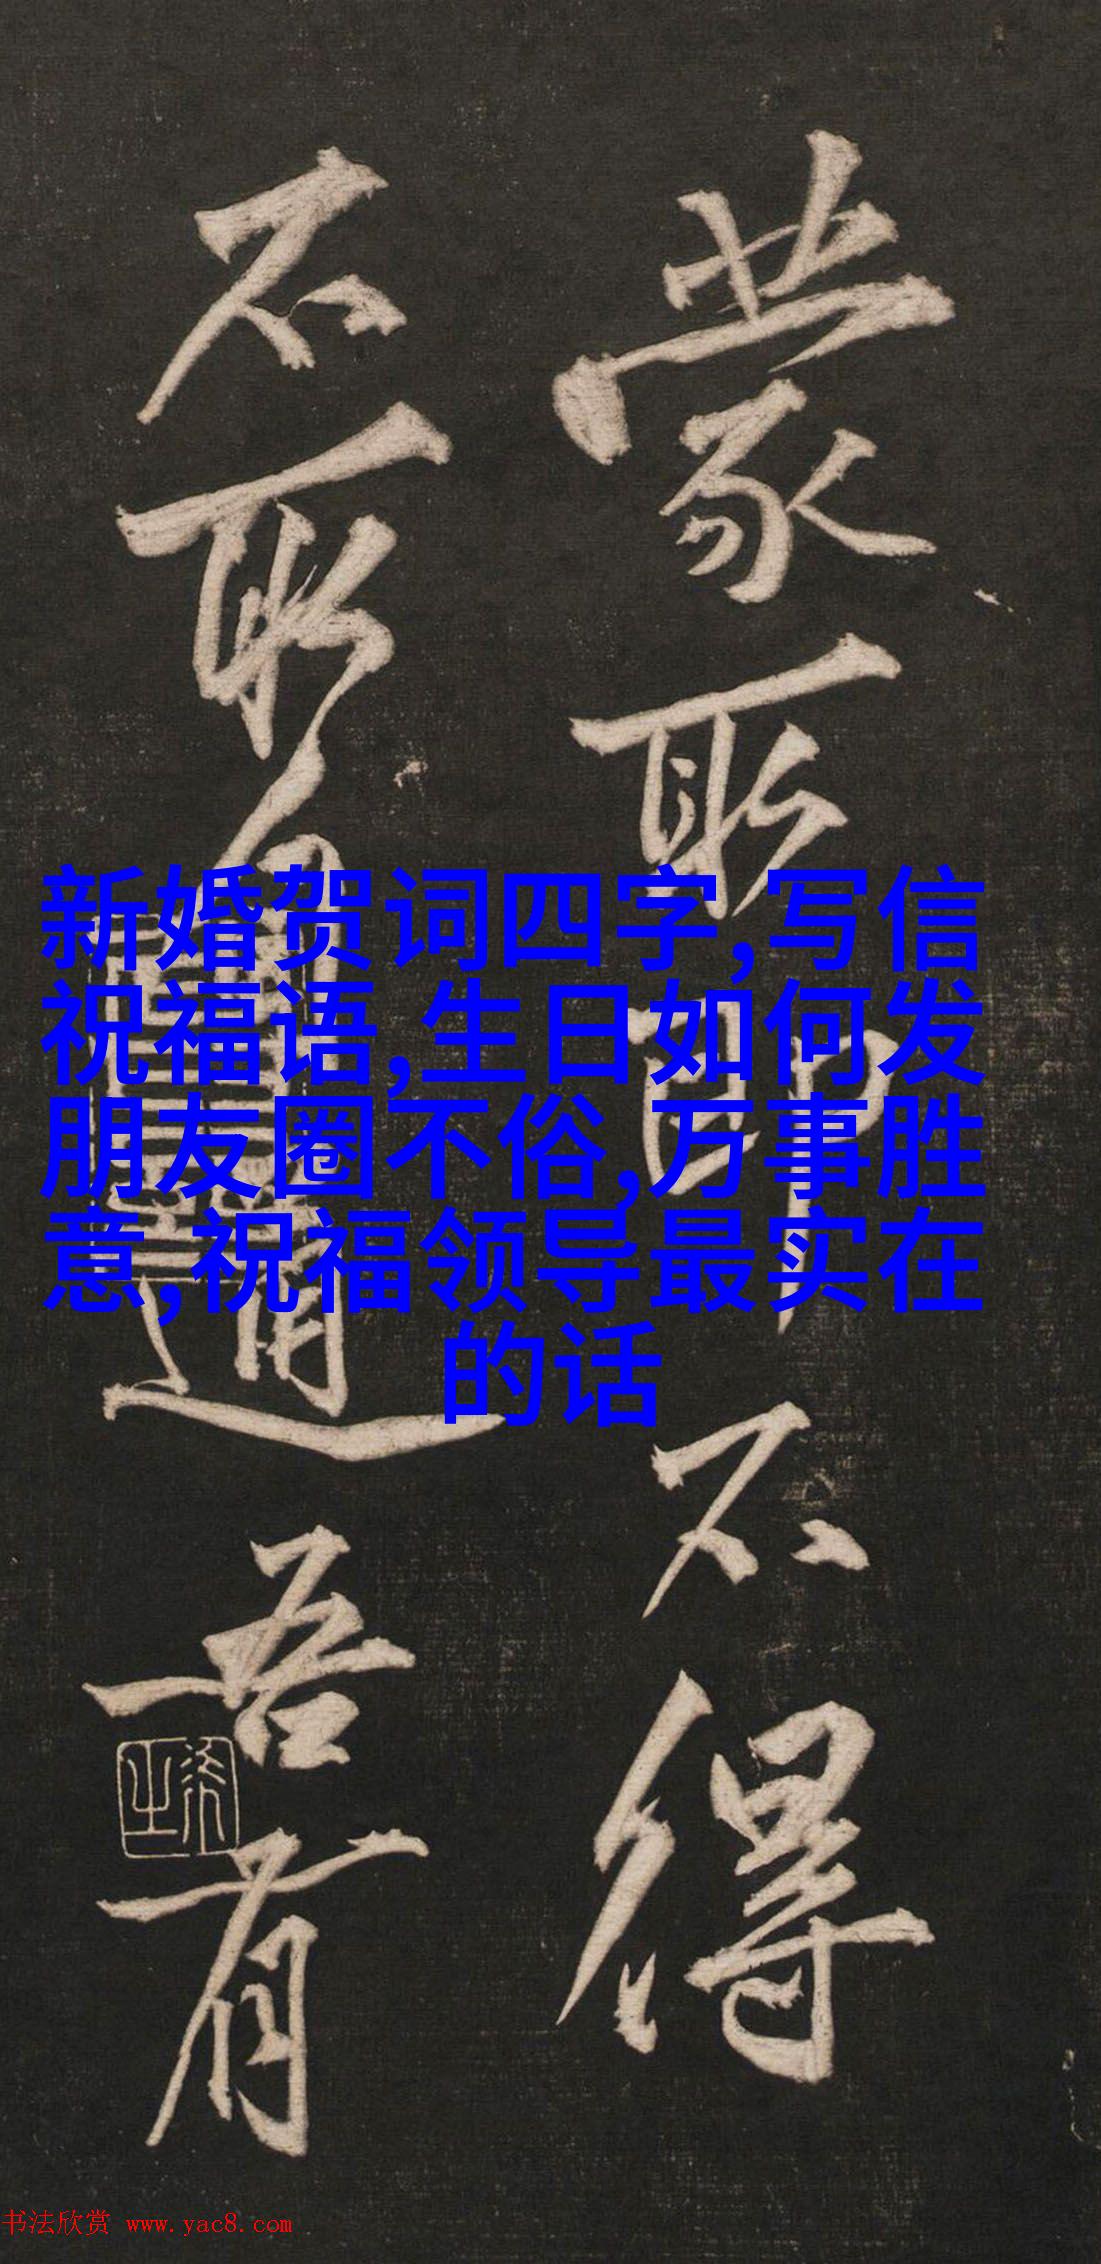 蒙取即不得
不取自通吾有
新婚贺词四字,写信
祝福语,生日如何发
朋友圈不俗,万事胜
意,祝福领导最实在
的话
书法欣赏 www.yac8.com